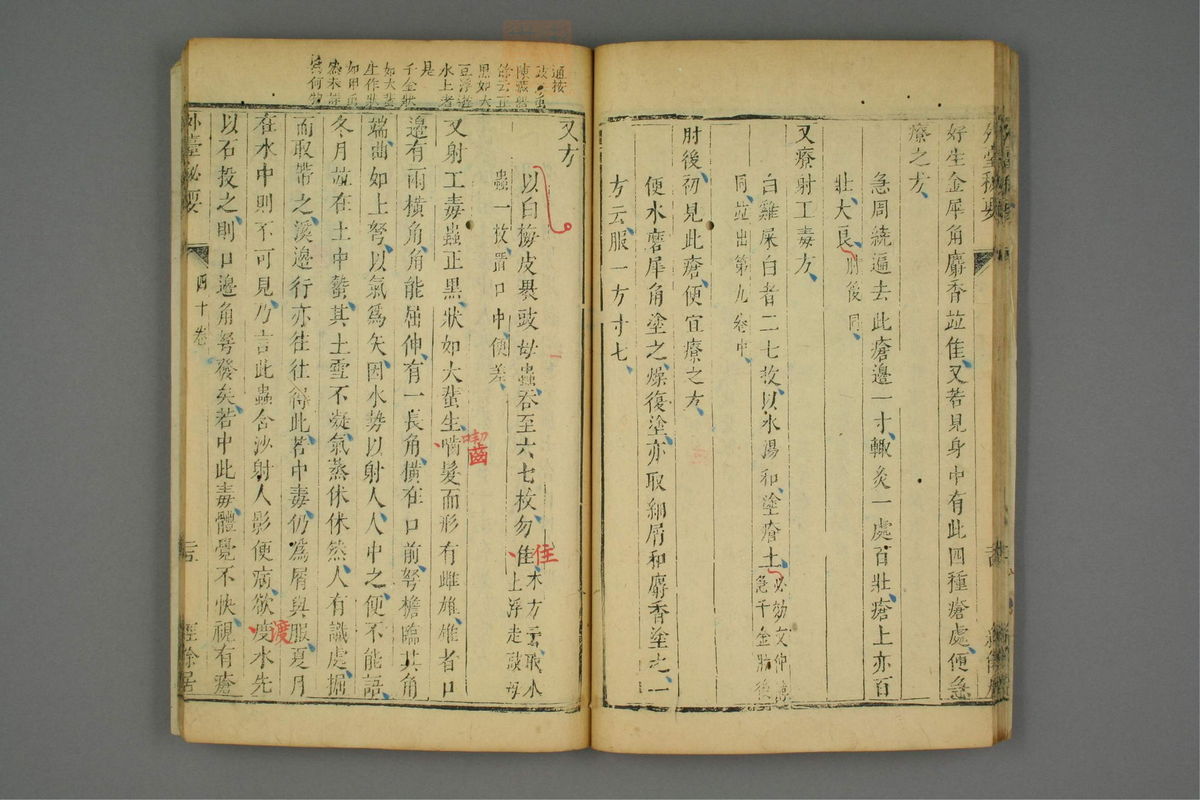 好生金犀角麝香竝佳又若見身中有此四種瘡處便急
療之方
急周繞遍去此瘡邊一寸輙灸一處百壯瘡上亦百
壯大良肘後同
又療射工毒方
白雞屎白者二七枚以水湯和塗瘡上必効文仲備
急千金肘後
同竝出第九卷中
肘後初見此瘡便宜療之方
便水磨犀角塗之燥復塗亦取細屑和麝香塗之一
方云服一方寸七
通按
豆浮遊
水上者
是
千金狀
如大蜚
生作狀
又方
以白梅皮裹豉母蟲吞至六七枚勿隹本方云取水
住
上浮走豉母
蟲一枚置口中便差
又射工毒蟲正黑狀如大蜚生嚙髮而形有雌雄雄者口
囓
邊有兩橫角角能屈伸有一長角橫在口前弩檐臨其角
端曲如上弩以氣爲矢因水勢以射人人中之便不能語
冬月故在土中蟄其土雪不凝氣蒸休休然人有識處掘
而取帶之溪邊行亦往往得此若中毒仍爲屑與服夏月
在水中則不可見乃言此蟲含沙射人影便病欲度水先
渡
以石投之則口邊角弩發矣若中此毒體覺不快視有瘡
外臺祕要
四十卷
經餘居